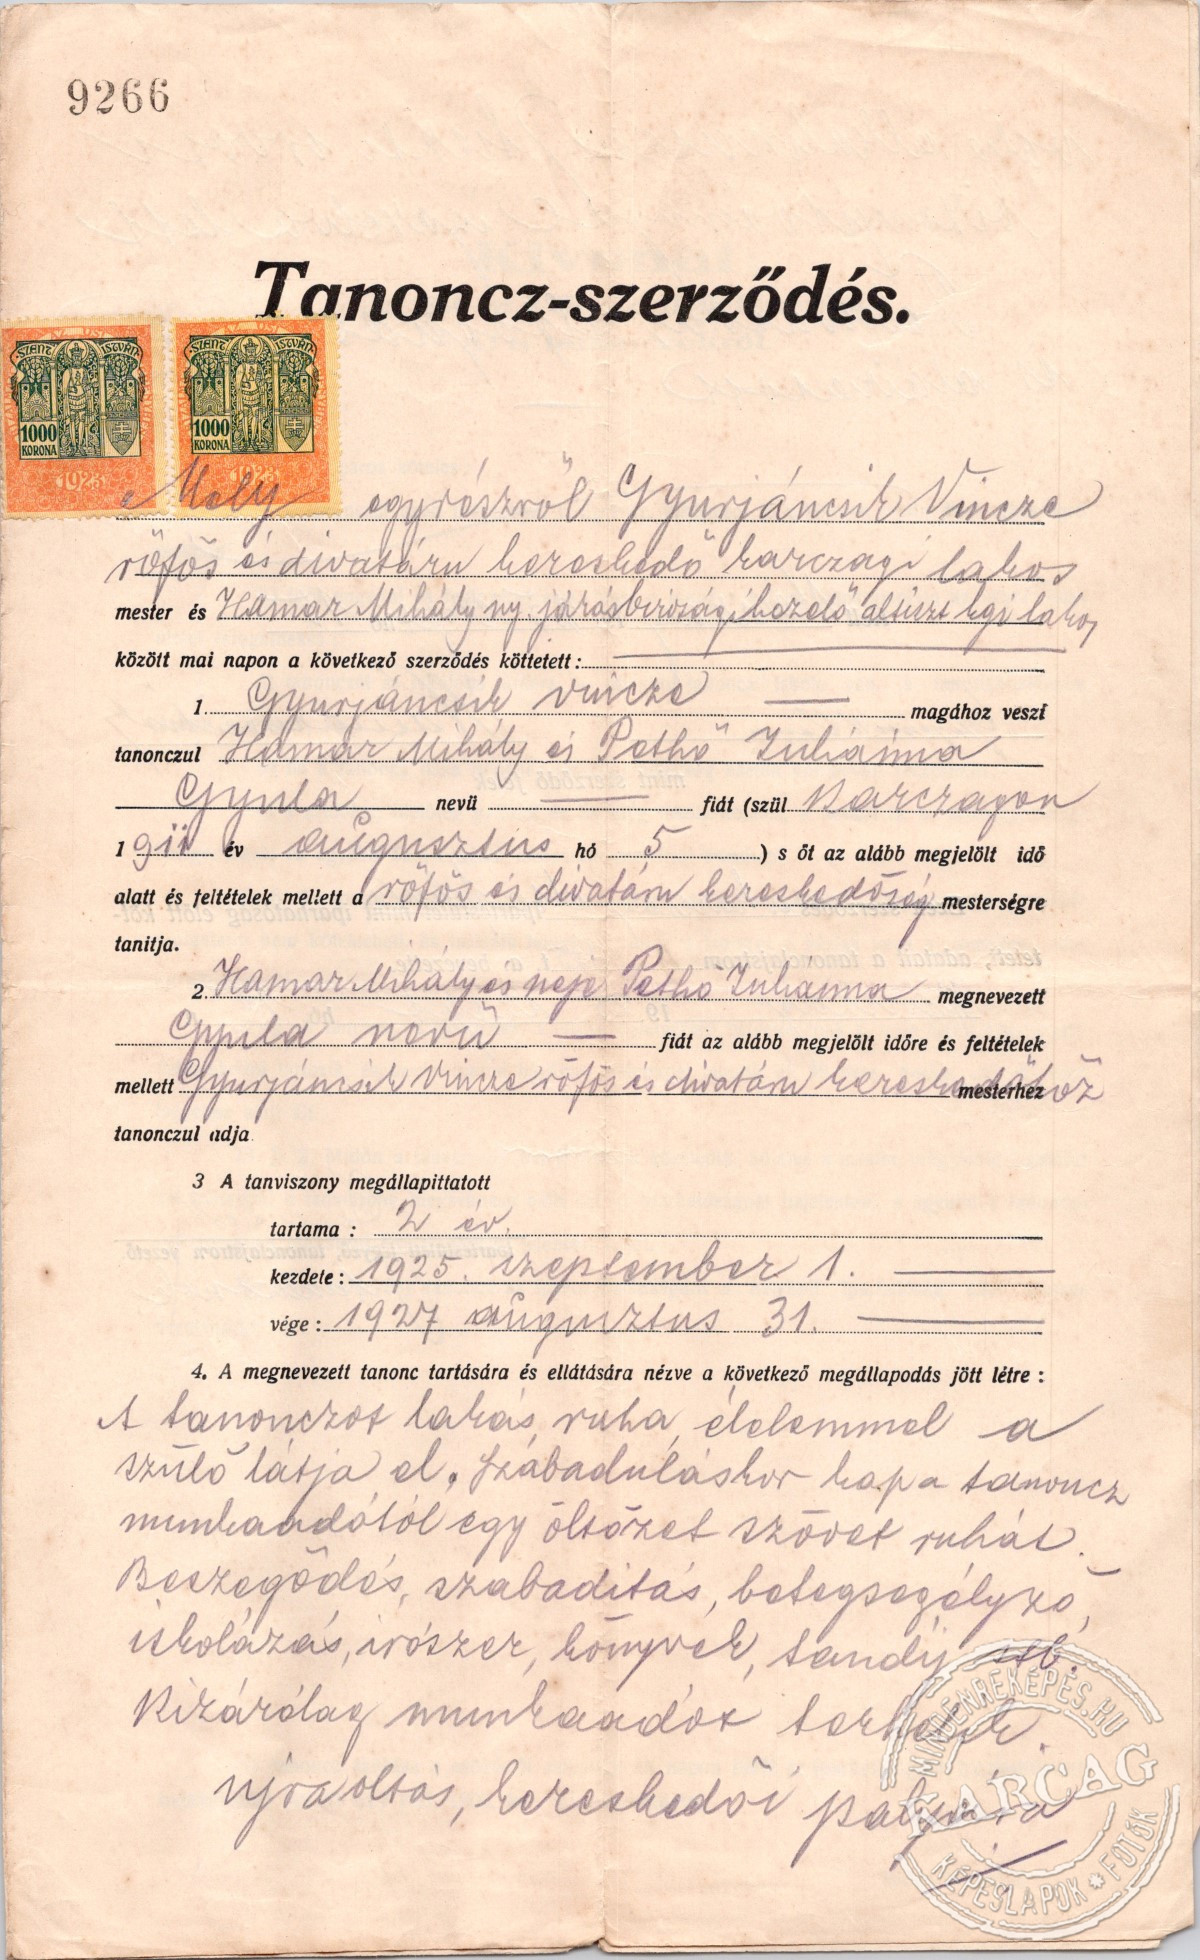 9266
Tanoncz-szerződés.
SZENT ISTVÁN SZENT ISTVÁN
1000 KORONA 1000 KORONA
1923 1923
Mely egyrészről Gyurjáncsik Vincze
rőfős és divatáru kereskedő karczagi lakos
mester és Hamar Mihály ny. járásbirósági kezelő altiszt kgi lakos
között mai napon a következő szerződés köttetett:
1. Gyurjáncsik Vincze magához veszi
tanonczul Hamar Mihály és Pethő Juliánna
Gyula nevü fiát (szül Karczagon
1911 év augusztus hó 5 ) s őt az alább megjelölt idő
alatt és feltételek mellett a rőfős és divatáru kereskedőség mesterségre
tanitja.
2. Hamar Mihály és neje Pethő Julianna megnevezett
Gyula nevü fiát az alább megjelölt időre és feltételek
mellett Gyurjáncsik Vincze rőfős és divatáru kereskedőhöz mesterhez
tanonczul adja
3 A tanviszony megállapittatott
tartama: 2 év.
kezdete: 1925. szeptember 1.
vége: 1927 augusztus 31.
4. A megnevezett tanonc tartására és ellátására nézve a következő megállapodás jött létre:
A tanonczot lakás, ruha, élelemmel a
szülő látja el. Szabaduláskor kap a tanoncz
munkaadótól egy öltözet szövet ruhát.
Beszegődés, szabaditás, betegsegélyző,
iskolázás, irószer, könyvek, tandij stb.
Kizárólag munkaadót terhelik.
ujraoltás, kereskedői pályára
MINDENREKÉPÉS.HU
KARCAG
KÉPESLAPOK * FOTÓK